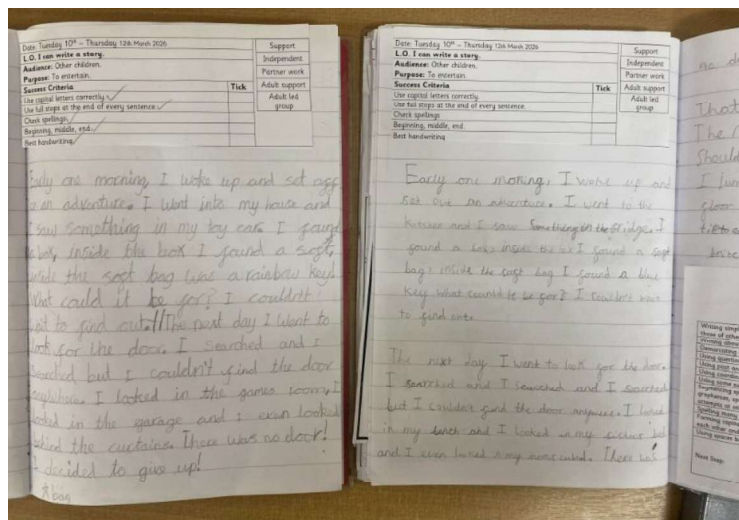 Date: Tuesday 10th – Thursday 12th March 2026
L.O. I can write a story.
Audience: Other children.
Purpose: To entertain.
Success Criteria
Tick
Use capital letters correctly.
Use full stops at the end of every sentence.
Check spellings
Beginning, middle, end.
Best handwriting
Support
Independent
Partner work
Adult support
Adult led
group
Early one morning, I woke up and set off
on an adventure. I went into my house and
I saw something in my toy car. I found
a box, inside the box I found a soft
inside the soft bag was a rainbow key.
What could it be for? I couldn't
wait to find out!! The next day I went to
look for the door. I searched and I
searched but I couldn't find the door
anywhere. I looked in the games room, I
looked in the garage and I even looked
behind the curtains. There was no door!
I decided to give up!
*bag
Date: Tuesday 10th – Thursday 12th March 2026
L.O. I can write a story.
Audience: Other children.
Purpose: To entertain.
Success Criteria
Tick
Use capital letters correctly.
Use full stops at the end of every sentence.
Check spellings
Beginning, middle, end.
Best handwriting
Support
Independent
Partner work
Adult support
Adult led
group
Early one morning, I woke up and
set out an adventure. I went to the
kitchen and I saw Something in the fridge. I
found a box inside the box I found a soft
bag, inside the soft bag I found a blue
key what be for? I wait
to find out.
The next day I went to look for the door.
I searched and I searched and I searched
but I couldn't find the door . I looked
in my and I looked in my bed
and I even looked in my mums . There was
no
That
The
Should
I
floor
Writing
those of other
Writing about
Demarcating
Using question
Using past and
Using
Using some
Segmenting
graphemes,
attempts at
Spelling many
Forming capital
each other and
Using spaces
Next Step: